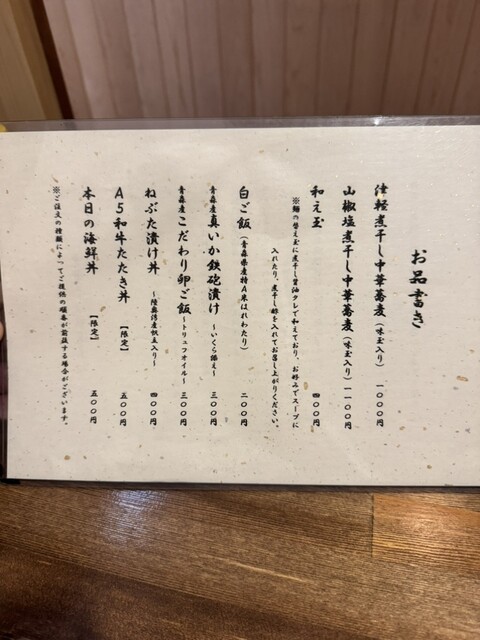 お品書き
津軽煮干し中華蕎麦（味玉入り） 一〇〇〇円
山椒塩煮干し中華蕎麦（味玉入り） 一一〇〇円
和え玉 四〇〇円
※麺の替え玉に煮干し醤油タレで和えており、お好みでスープに
入れたり、煮干し酢を入れてお召し上がりください。
白ご飯（青森県産特A米はれわたり） 二〇〇円
青森産真いか鉄砲漬け〜いくら添え〜 三〇〇円
青森産こだわり卵ご飯〜トリュフオイル〜 三〇〇円
ねぶた漬け丼〜陸奥湾産帆立入り〜 四〇〇円
A5和牛たたき丼【限定】 五〇〇円
本日の海鮮丼【限定】 五〇〇円
※ご注文の種類によってご提供の順番が前後する場合がございます。